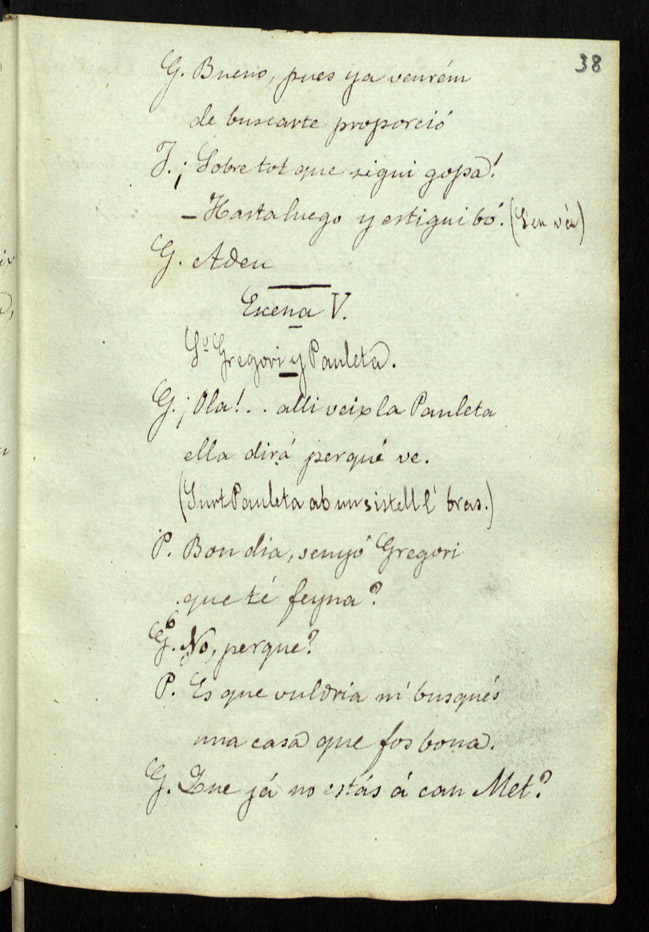 38
G. Bueno, pues ya veurém
de buscarte proporció
J. ¡Sobre tot que sigui gopa!
— Hasta luego y estigui bó. (S'en vá)
G. Adeu
Escena V.
Sr. Gregori y Pauleta.
G. ¡Ola!.. alli veix la Pauleta
ella dirá perqué ve.
(Surt Pauleta ab un sistell l' bras.)
P. Bon dia, senyó Gregori
que té feyna?
G. No, perque?
P. Es que vuldria m' busqués
una casa que fos bona.
G. Que já no estás á can Met?